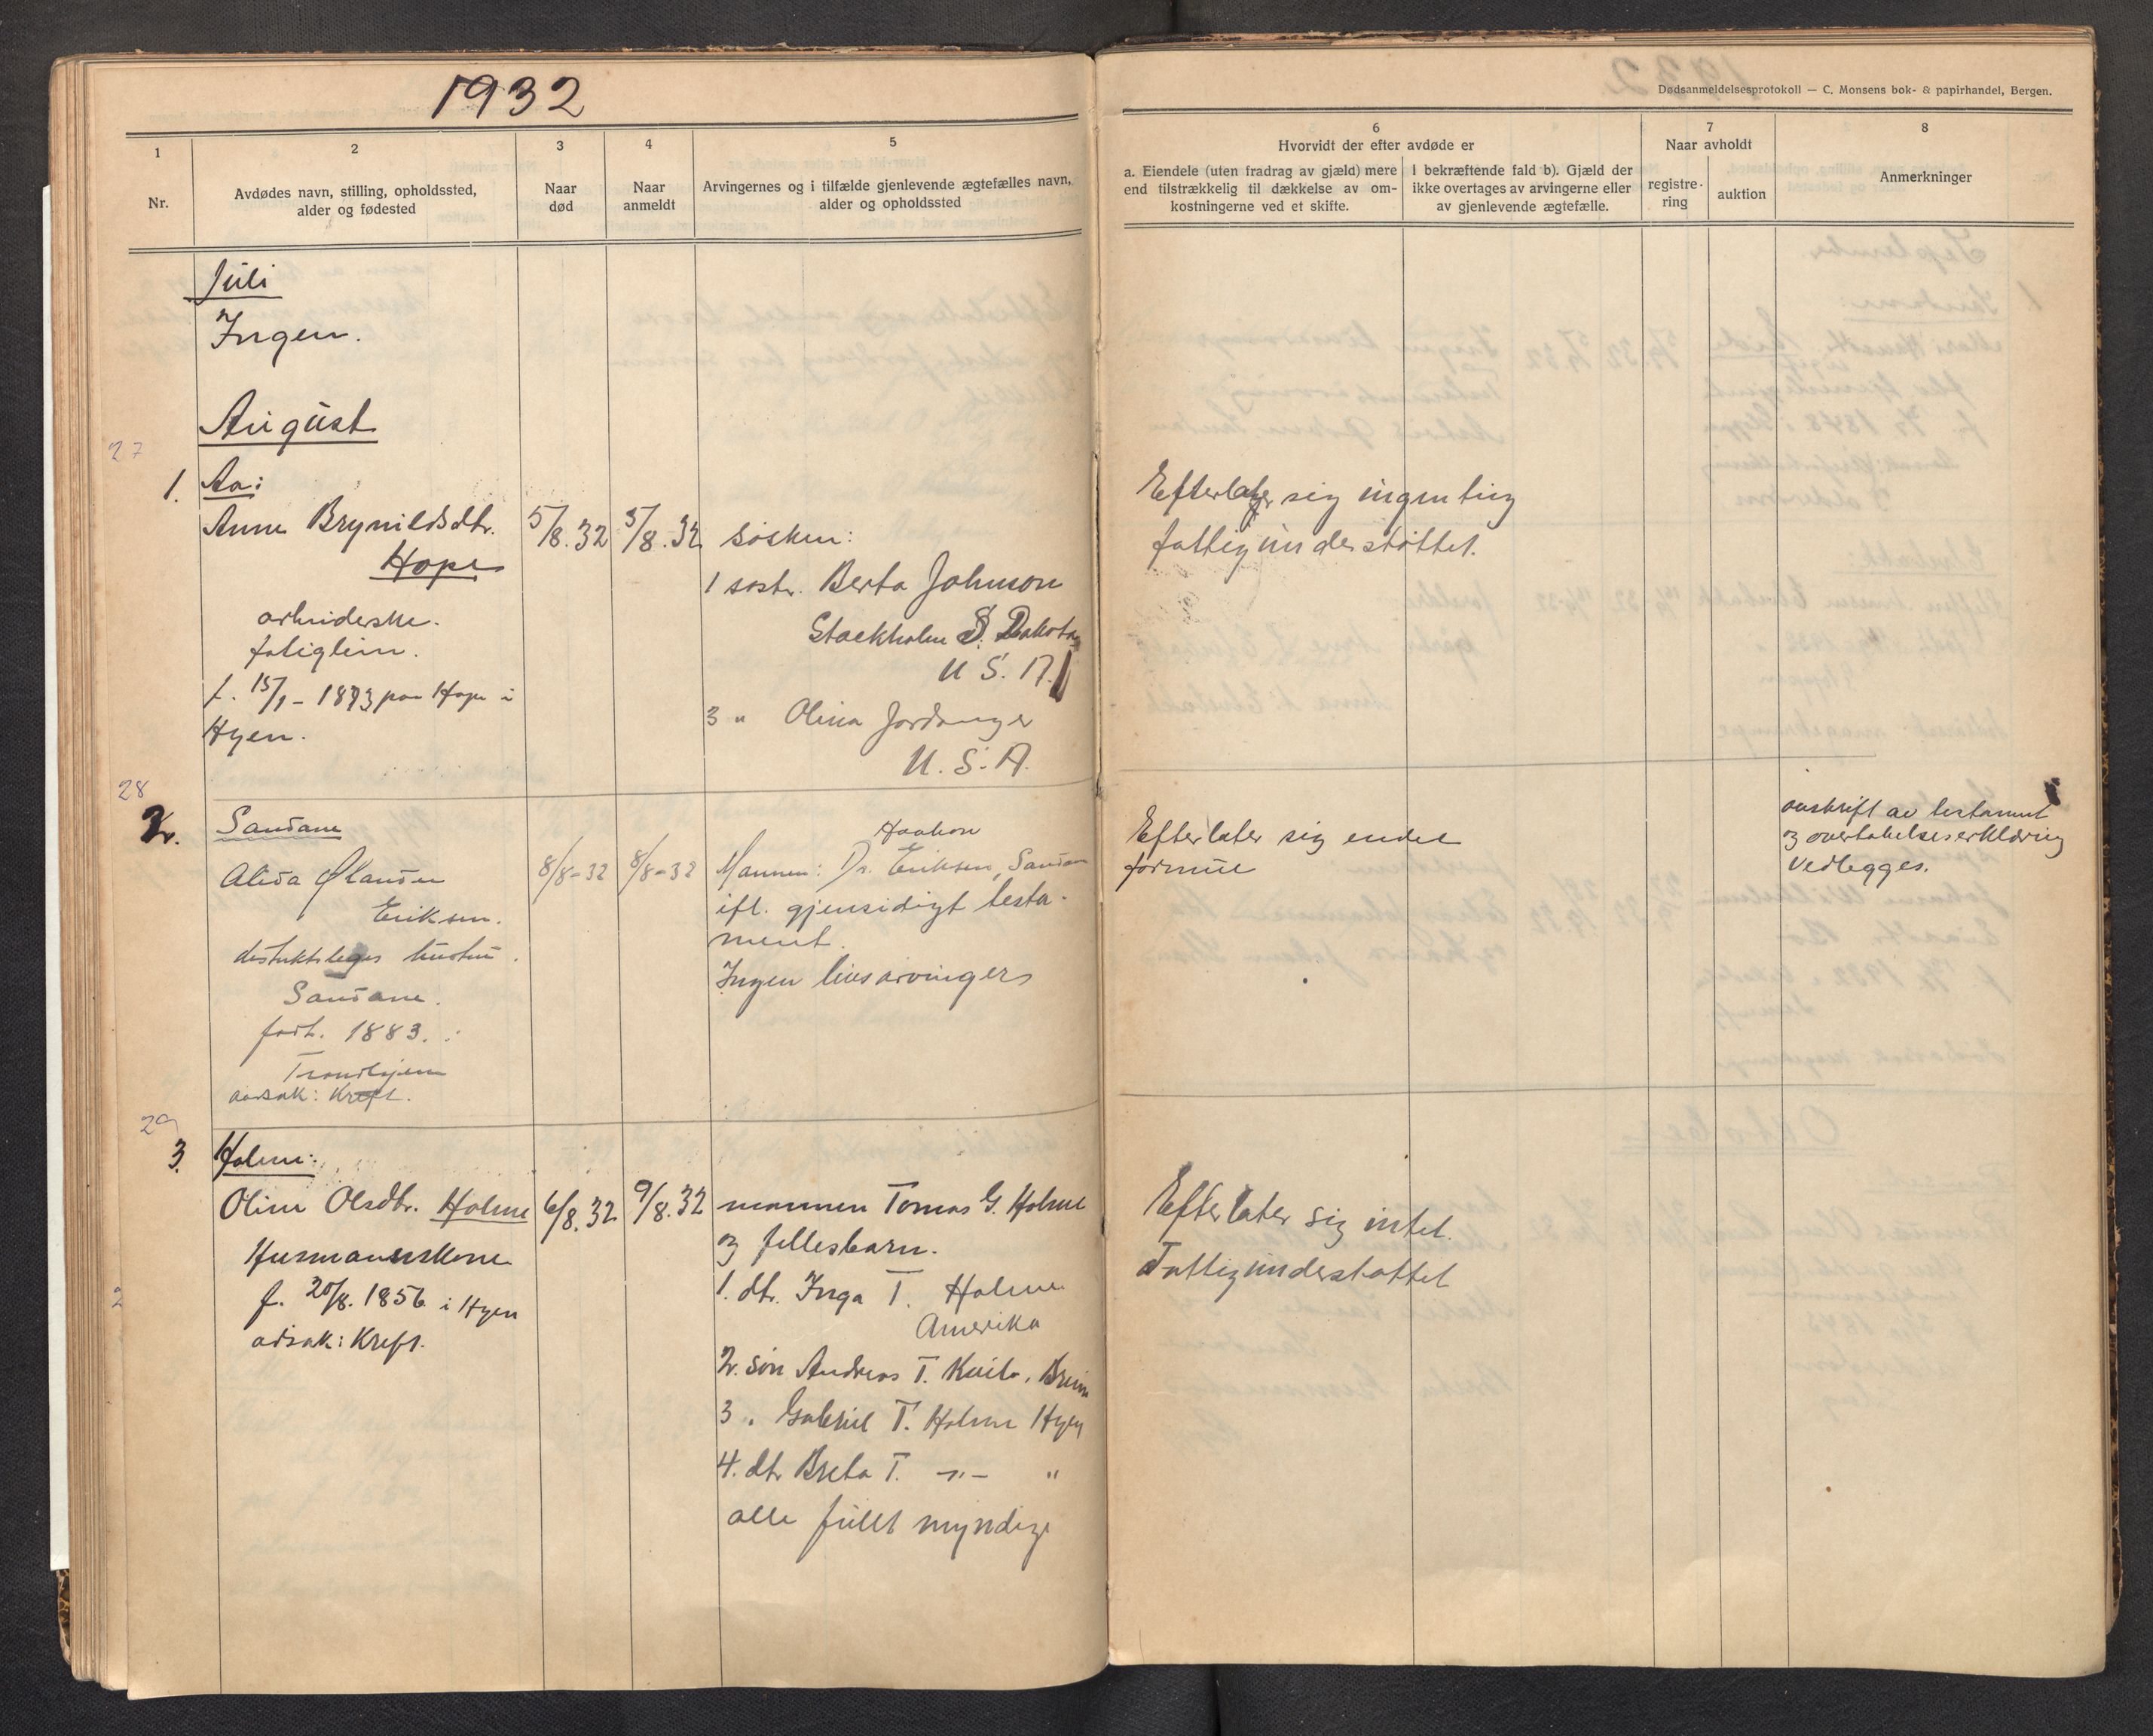 1932
Dødsanmeldelsesprotokoll — C. Monsens bok- & papirhandel, Bergen.
1
Nr.
2
Avdødes navn, stilling, opholdssted,
alder og fødested
3
Naar
død
4
Naar
anmeldt
5
Arvingernes og i tilfælde gjenlevende ægtefælles navn,
alder og opholdssted
6
Hvorvidt der efter avdøde er
a. Eiendele (uten fradrag av gjæld) mere
end tilstrækkelig til dækkelse av om-
kostningerne ved et skifte.
I bekræftende fald b). Gjæld der
ikke overtages av arvingerne eller
av gjenlevende ægtefælle.
7
Naar avholdt
registre-
ring
auktion
8
Anmerkninger
Juli
Ingen.
August
27
1. Aa:
Anne Brynildsdtr.
Hope
arbeiderske.
f. 15/1 - 1873 paa Hope i
Hyen.
5/8.32
5/8.32
søsken:
1 søstr. Berta Johnson
Stockholm S. Dakota
U S. A.
3 " Olina Jordanger
U. S. A.
Efterlater sig ingenting
fattigunderstøttet.
28
2. Sandane
Alida Ølander
Eriksen.
distriktsleges hustru.
Sandane.
født. 1883.
Trondhjem
aarsak: Kreft.
8/8-32
8/8-32
Haakon
Mannen: Dr. Eriksen, Sandane
ifl. gjensidigt testa-
ment.
Ingen livsarvinger
Efterlater sig endel
formue
avskrift av testament
og overtakelseserklæring
vedlegges.
29
3. Holme:
Oline Olsdtr. Holme
Husmannskone
f. 20/8. 1856 i Hyen
årsak: Kreft.
6/8.32
9/8.32
mannen Tomas G. Holme
og fellesbarn.
1. dtr. Inga T. Holme
Amerika
2. søn Andreas T. Breim
3 " Gabriel T. Holme Hyen
4. dtr Breta T. -"- "
alle fullt myndige
Efterlater sig intet.
Fattigunderstøttet
2